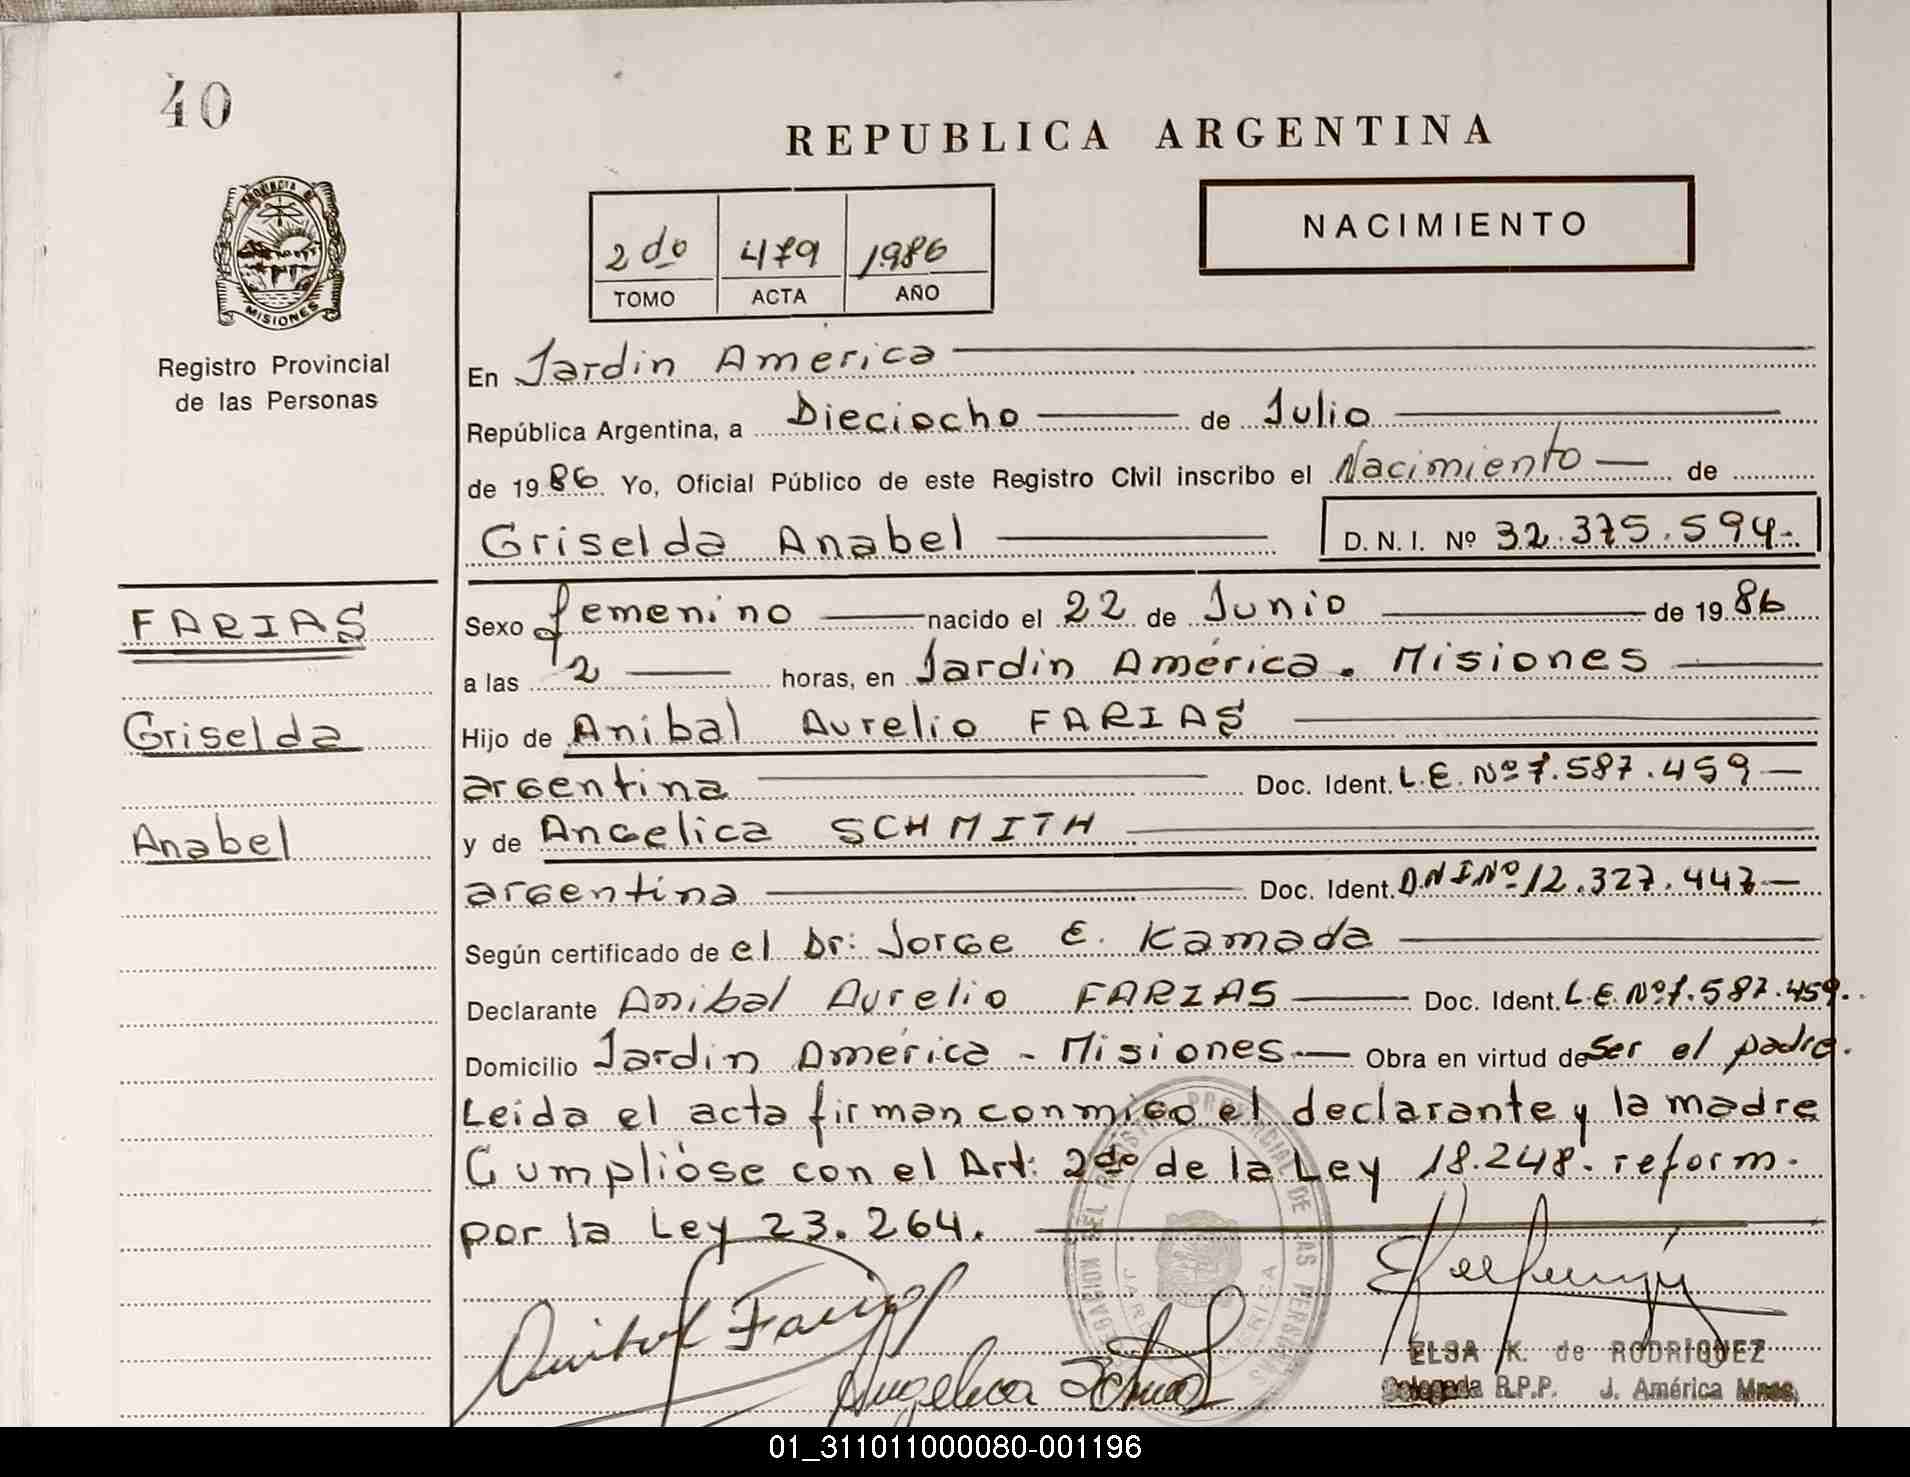 40
REPUBLICA ARGENTINA
PROVINCIA DE
MISIONES
Registro Provincial
de las Personas
2do 479 1986
TOMO ACTA AÑO
NACIMIENTO
En Jardin America
República Argentina, a Dieciocho de Julio
de 1986 Yo, Oficial Público de este Registro Civil inscribo el Nacimiento de
Griselda Anabel D. N. I. Nº 32.375.594.-
FARIAS
Griselda
Anabel
Sexo femenino nacido el 22 de Junio de 1986
a las 2 horas, en Jardin América. Misiones
Hijo de Anibal Aurelio FARIAS
argentina Doc. Ident. L.E. Nº 7.587.459
y de Angelica SCHMITH
argentina Doc. Ident. DNI Nº 12.327.447
Según certificado de el Dr: Jorge E. Kamada
Declarante Anibal Aurelio FARIAS Doc. Ident. L.E. Nº 7.587.459.
Domicilio Jardin América - Misiones Obra en virtud de Ser el padre.
Leida el acta firman conmigo el declarante y la madre
Cumplióse con el Art: 2do de la Ley 18.248. reform.
por la Ley 23.264.
Anibal Farias
Angelica
ELSA K. de RODRIGUEZ
Delegada R.P.P. J. América Mnes.
01_311011000080-001196